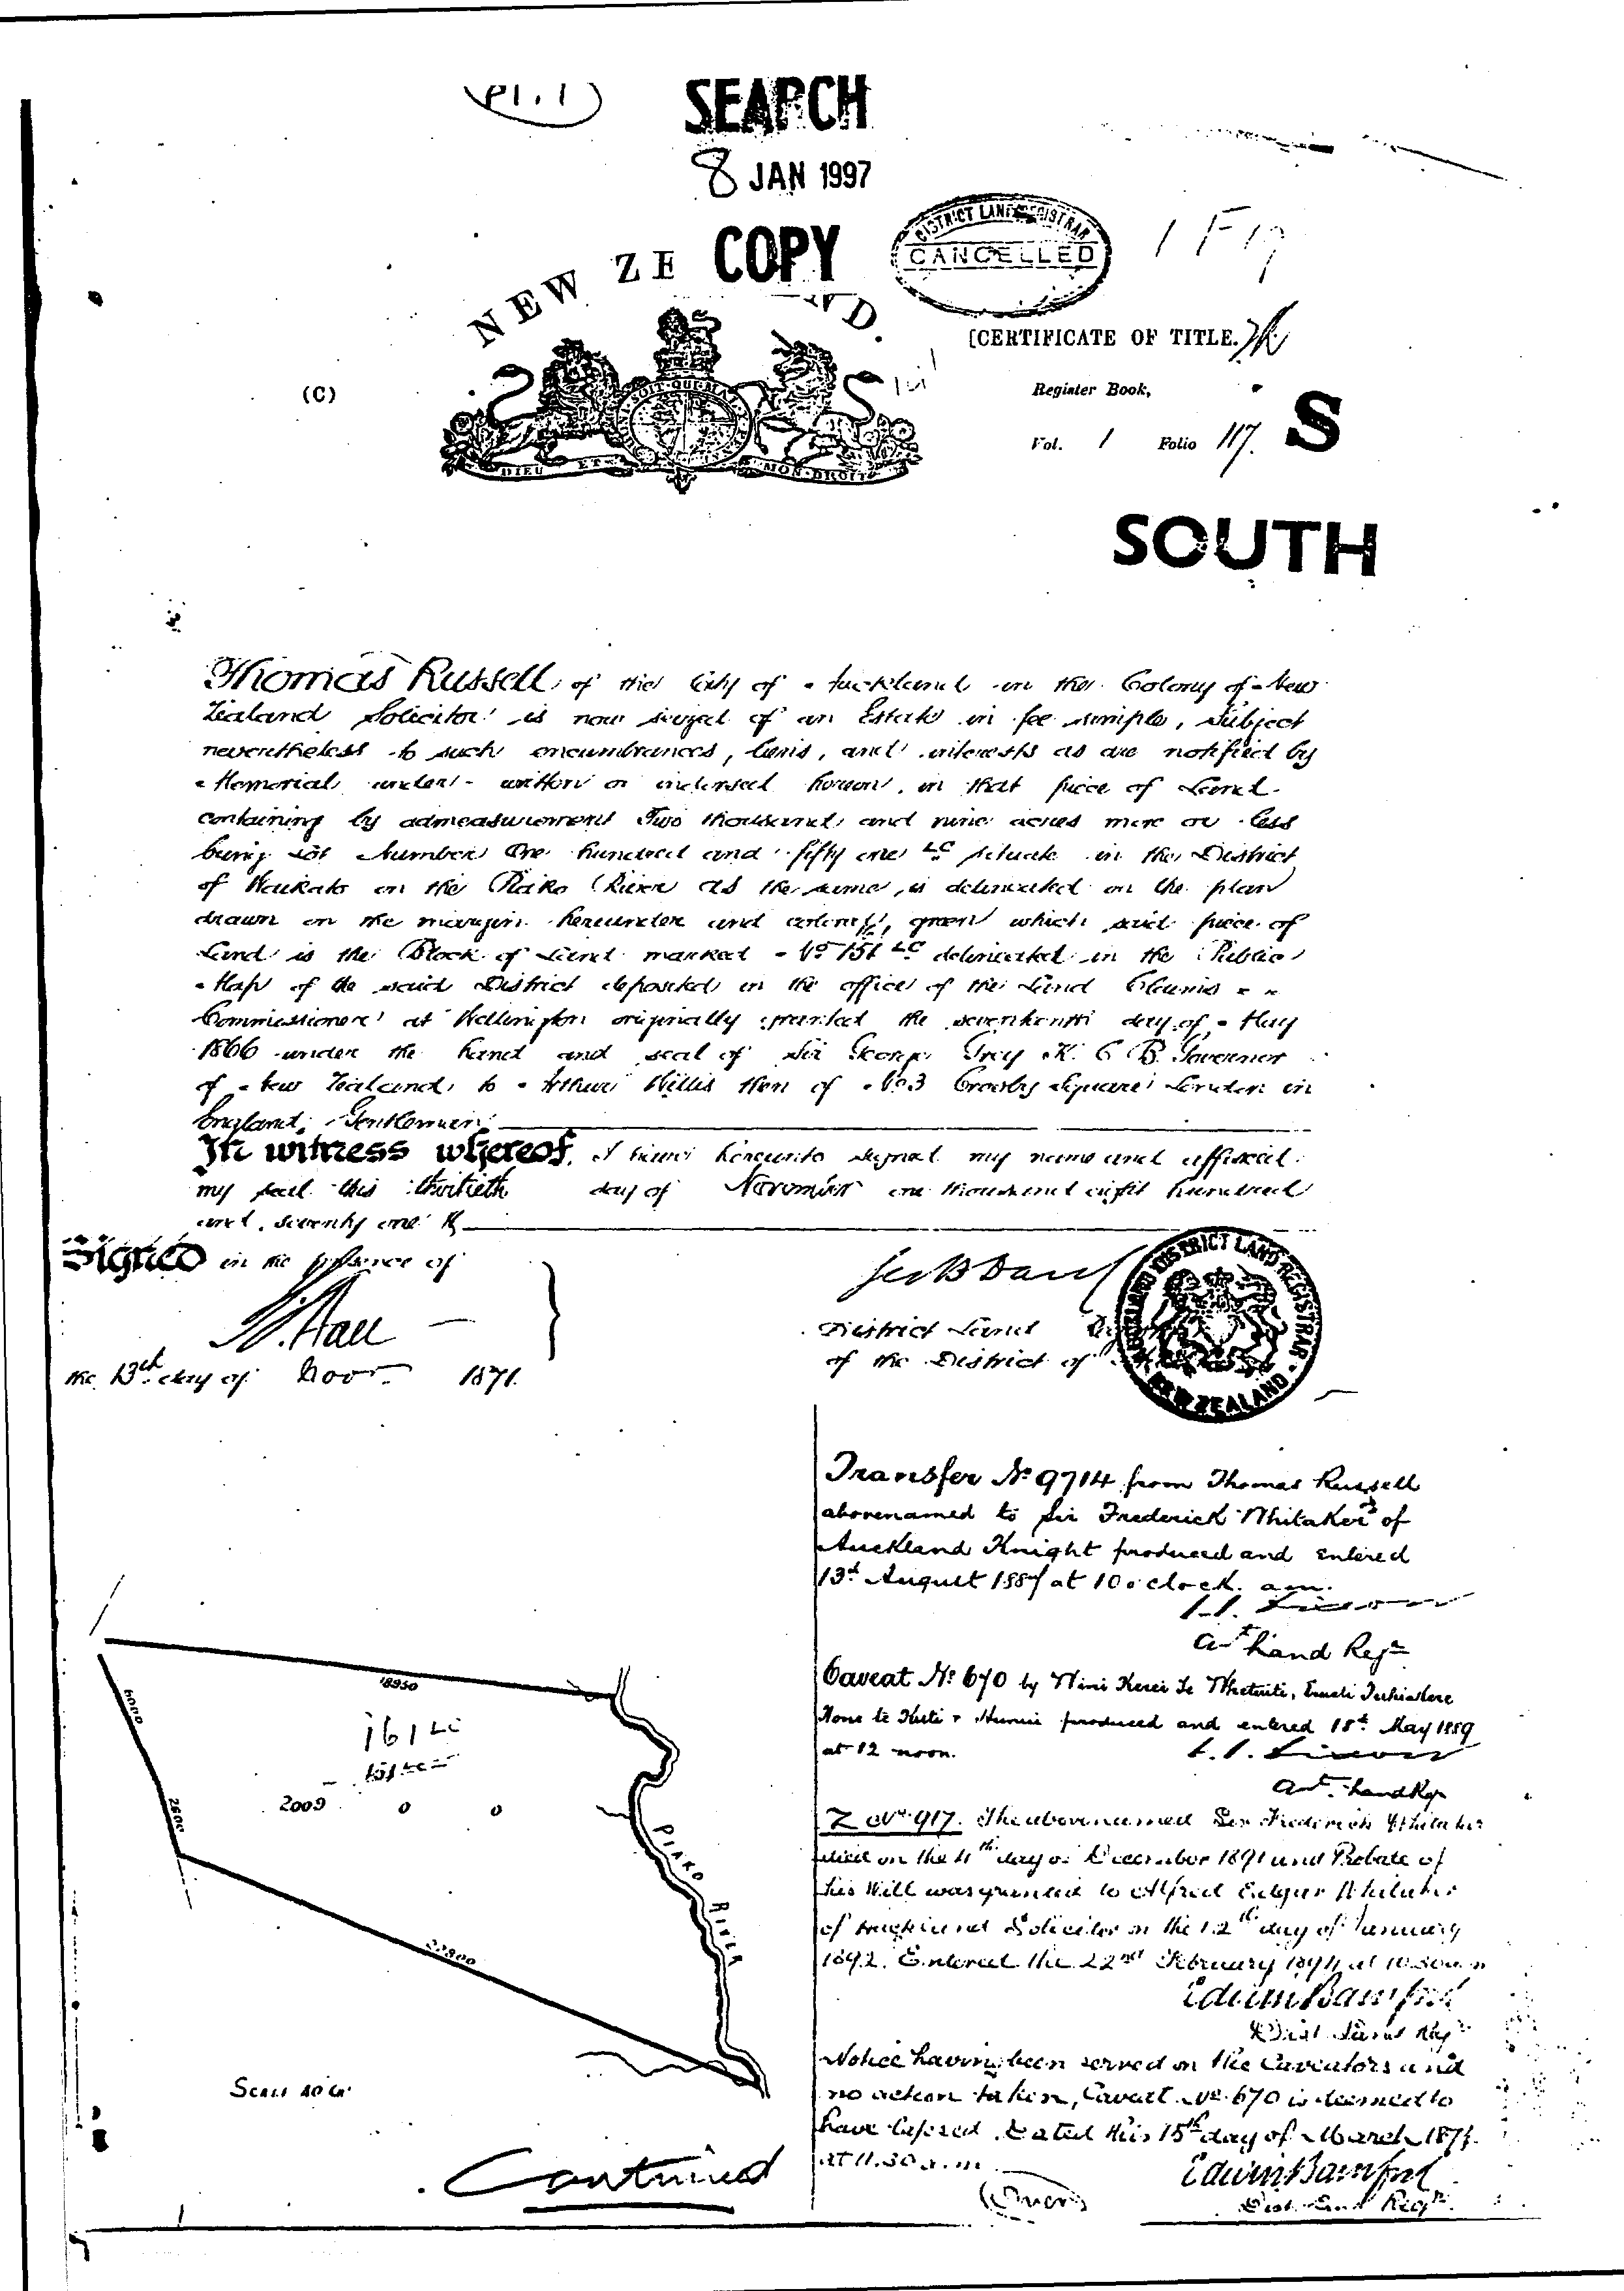 (Pt. 1)
SEARCH
8 JAN 1997
COPY
NEW ZE ND.
DISTRICT LAND REGISTRAR
CANCELLED
[CERTIFICATE OF TITLE.
(C)
Register Book,
Vol. 1 Folio 117.
S
DIEU ET MON DROIT
SOUTH
Thomas Russell of the City of Auckland in the Colony of New
Zealand Solicitor is now seized of an Estate in fee simple, subject
nevertheless to such encumbrances, liens, and interests as are notified by
Memorial under-written or indorsed hereon, in that piece of Land
containing by admeasurement Two thousand and nine acres more or less
being Lot Number One hundred and fifty one LC situate in the District
of Waikato on the Piako River as the same is delineated on the plan
drawn on the margin hereunder and colored green which said piece of
Land is the Block of Land marked No 151 LC delineated in the Public
Map of the said District deposited in the office of the Land Claims
Commissioners at Wellington originally granted the seventeenth day of May
1866 under the hand and seal of Sir George Grey K. C B. Governor
of New Zealand to Arthur Willis then of No 3 Crosby Square London in
England, Gentleman
In witness whereof, I have hereunto signed my name and affixed
my seal this thirtieth day of November one thousand eight hundred
and seventy one
Signed in the presence of
the 13th day of Novr 1871.
District Land
of the District of
DISTRICT LAND REGISTRAR
NEW ZEALAND
Transfer No 9714 from Thomas Russell
abovenamed to Sir Frederick Whitaker of
Auckland Knight produced and entered
13th August 1887 at 10 o'clock. a.m.
Land Regr
Caveat No 670 by
produced and entered 18th May 1889
at 12 noon.
Land Regr
Z No 917. The abovenamed Sir Frederick Whitaker
died on the 4th day of December 1891 and Probate of
his Will was granted to Alfred Edgar Whitaker
of Auckland Solicitor on the 12th day of January
1892. Entered the 22nd February 1894 at 10.30 a.m
Edwin Bamford
Dist. Land Regr
Notice having been served on the Caveators and
no action taken, Caveat No 670 is deemed to
have lapsed. Dated this 15th day of March
at 11.30 a.m.
Edwin Bamford
Dist. Land Regr.
(Over)
18950
6000
161 LC
2009 0 0
2600
PIAKO RIVER
Continued